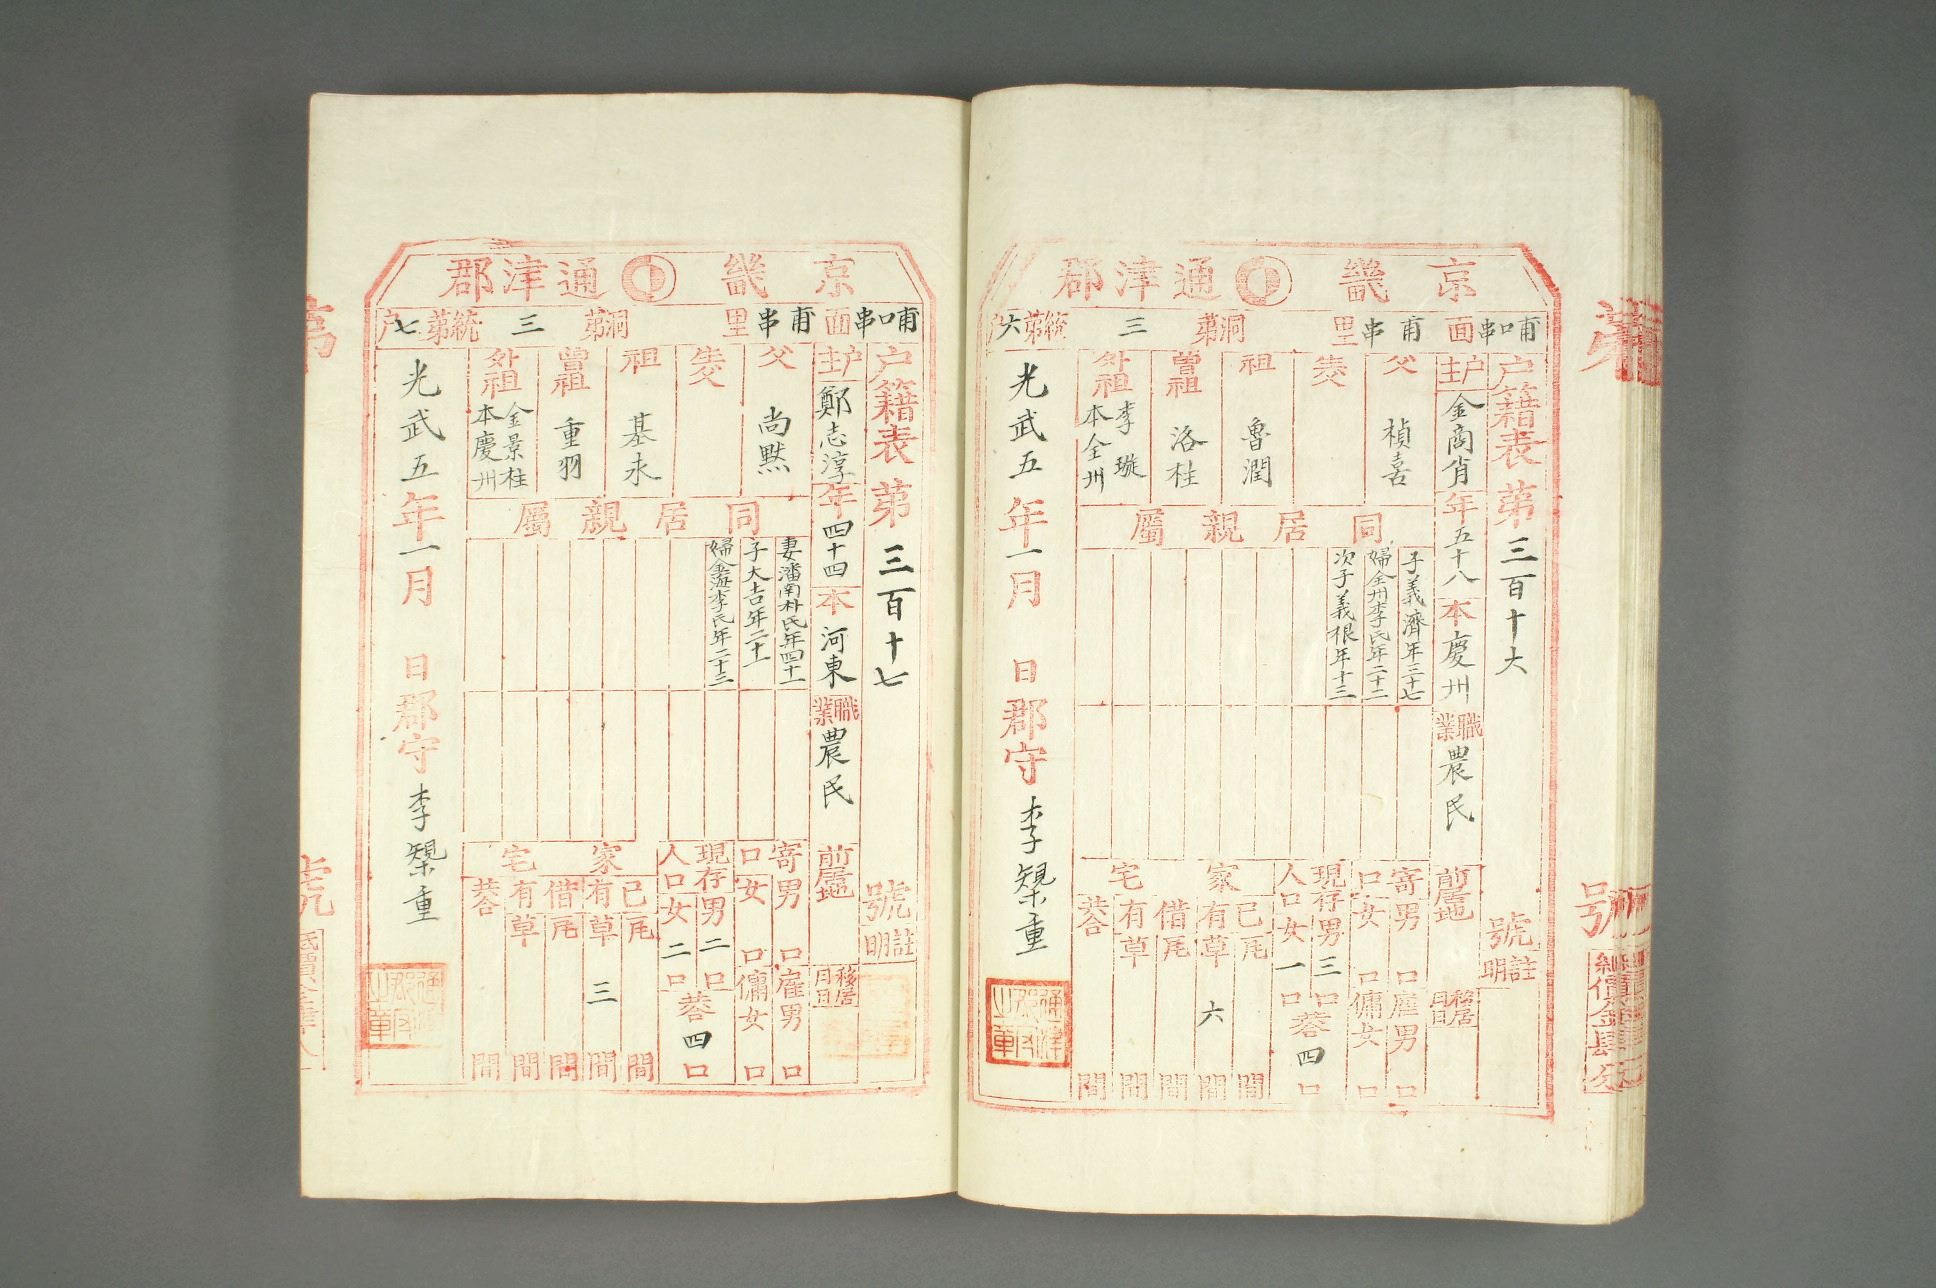 京畿 通津郡
哺口串面 甫串里 洞第 三 統第 六 户
户籍表第 三百十六 號
註明
户主 金商肖 年 五十八 本 慶州 職業 農民 前居地 移居月日
父 楨喜
生父
祖 魯潤
曾祖 洛柱
外祖 李璇 本全州
同居親屬
子義濟年三十七
婦全州李氏年二十二
次子義根年十三
寄口 男 口 女 口
雇男 口 傭女 口
現存人口 男 三 口 女 一 口 共合 四 口
家宅
已有 瓦 間 草 六 間
借有 瓦 間 草 間
共合 間
光武 五 年 一 月 日 郡守 李榘重
京畿 通津郡
哺口串面 甫串里 洞第 三 統第 七 户
户籍表第 三百十七 號
註明
户主 鄭志淳 年 四十四 本 河東 職業 農民 前居地 移居月日
父 尚黙
生父
祖 基永
曾祖 重羽
外祖 金景柱 本慶州
同居親屬
妻潘南朴氏年四十一
子大吉年二十一
婦金海李氏年二十三
寄口 男 口 女 口
雇男 口 傭女 口
現存人口 男 二 口 女 二 口 共合 四 口
家宅
已有 瓦 間 草 三 間
借有 瓦 間 草 間
共合 間
光武 五 年 一 月 日 郡守 李榘重